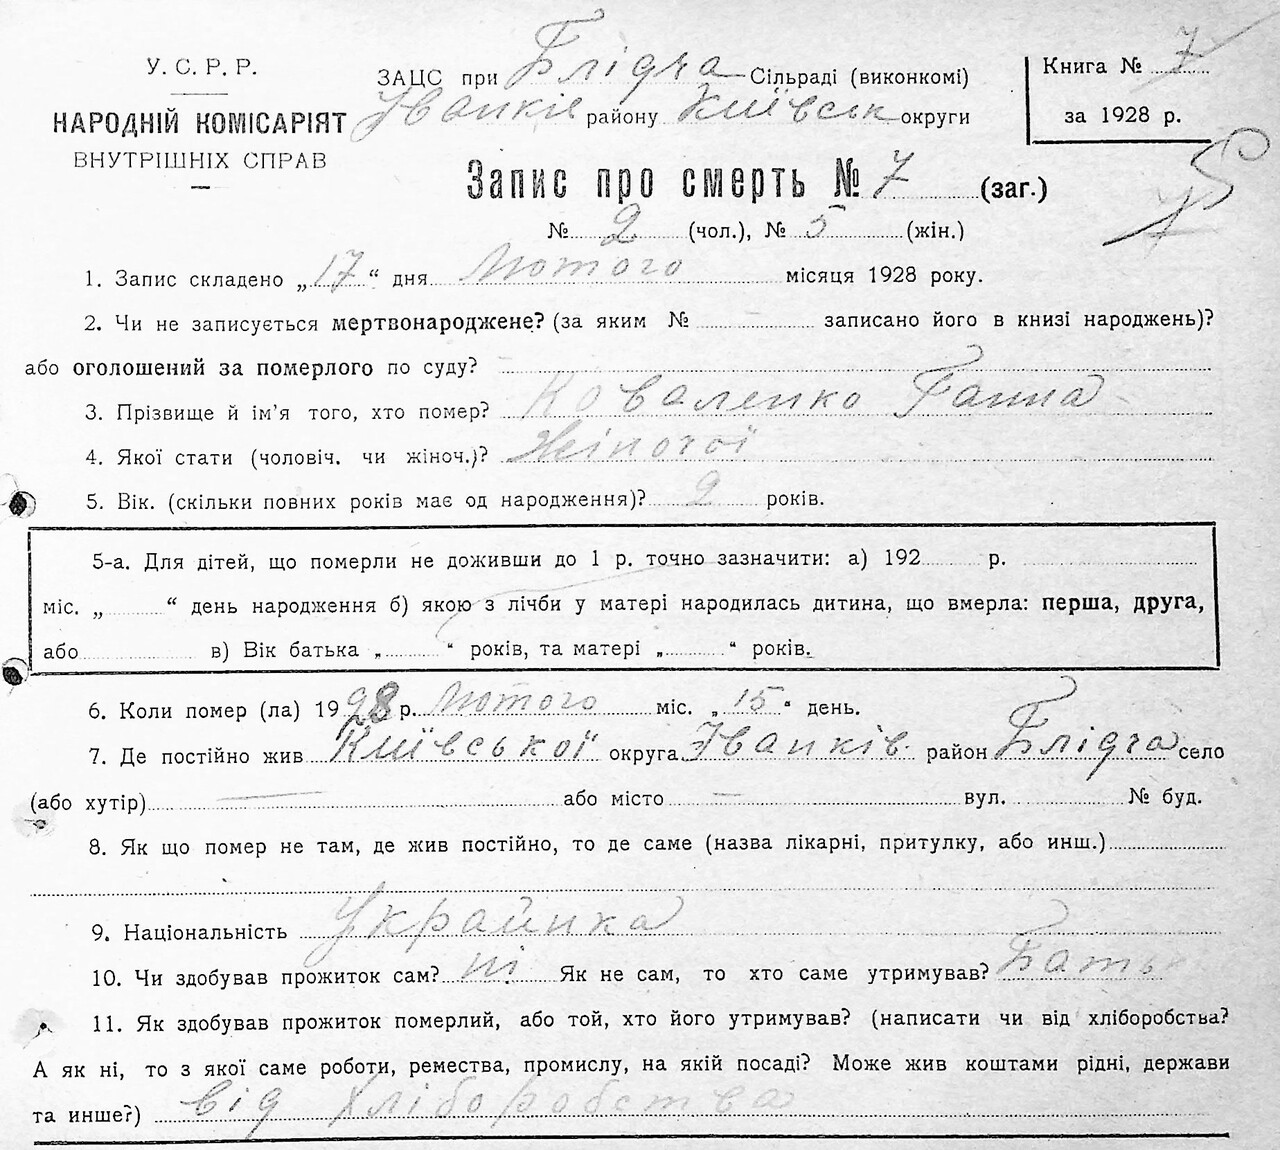 У. С. Р. Р.
НАРОДНІЙ КОМІСАРІЯТ
ВНУТРІШНІХ СПРАВ
ЗАЦС при Блідча Сільраді (виконкомі)
Іванків району Київськ округи
Книга № 7
за 1928 р.
Запис про смерть № 7 (заг.)
№ 2 (чол.), № 5 (жін.)
1. Запис складено „17“ дня Лютого місяця 1928 року.
2. Чи не записується мертвонароджене? (за яким № записано його в книзі народжень)?
або оголошений за померлого по суду?
3. Прізвище й ім’я того, хто помер? Коваленко Ганна
4. Якої стати (чоловіч. чи жіноч.)? Жіночої
5. Вік. (скільки повних років має од народження)? 2 років.
5-а. Для дітей, що померли не доживши до 1 р. точно зазначити: а) 192 р.
міс. „ “ день народження б) якою з лічби у матері народилась дитина, що вмерла: перша, друга,
або в) Вік батька „ “ років, та матері „ “ років.
6. Коли помер (ла) 1928 р. Лютого міс. „15“ день.
7. Де постійно жив Київської округа Іванків район Блідча село
(або хутір) — або місто — вул. № буд.
8. Як що помер не там, де жив постійно, то де саме (назва лікарні, притулку, або инш.)
9. Національність Українка
10. Чи здобував прожиток сам? ні Як не сам, то хто саме утримував? Батьк
11. Як здобував прожиток померлий, або той, хто його утримував? (написати чи від хліборобства?
А як ні, то з якої саме роботи, ремества, промислу, на якій посаді? Може жив коштами рідні, держави
та инше?) від хліборобства